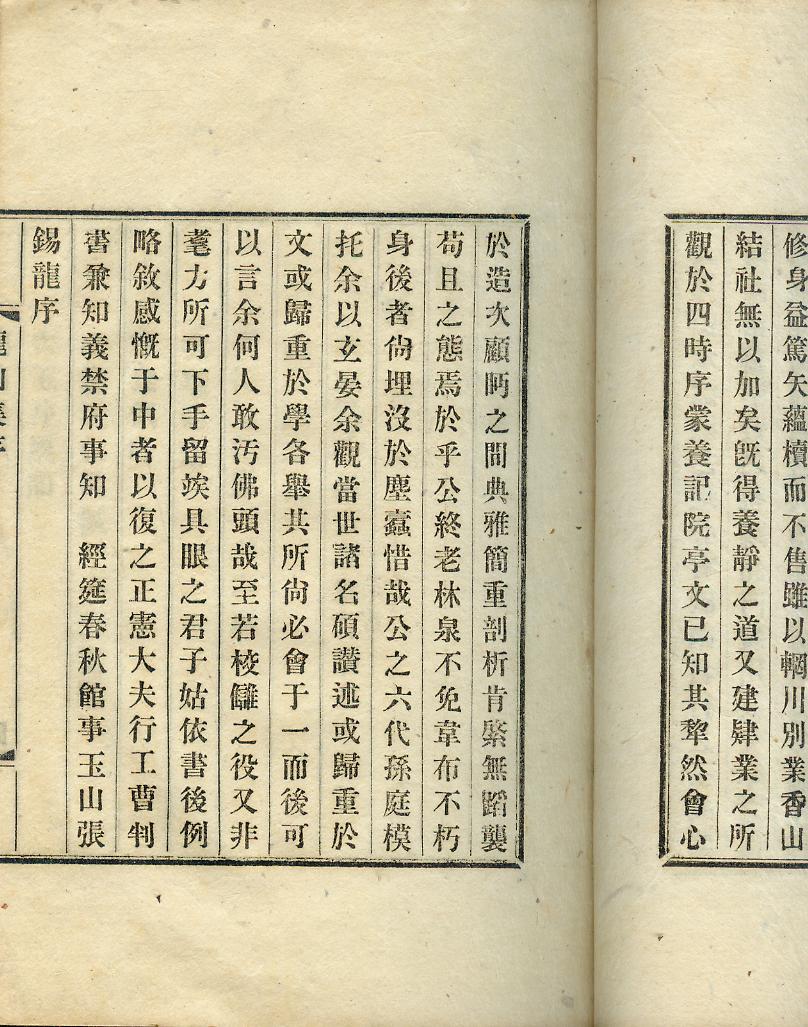 修身益篤矢蘊櫝而不售雖以輞川別業香山
結社無以加矣旣得養靜之道又建肄業之所
觀於四時序蒙養記院亭文已知其犂然會心
於造次顧眄之間典雅簡重剖析肯綮無蹈襲
苟且之態焉於乎公終老林泉不免韋布不朽
身後者尙埋沒於塵蠧惜哉公之六代孫庭模
托余以玄晏余觀當世諸名碩讚述或歸重於
文或歸重於學各擧其所尙必會于一而後可
以言余何人敢汚佛頭哉至若校讎之役又非
耄力所可下手留竢具眼之君子姑依書後例
略敘感慨于中者以復之正憲大夫行工曹判
書兼知義禁府事知　經筵春秋館事玉山張
錫龍序